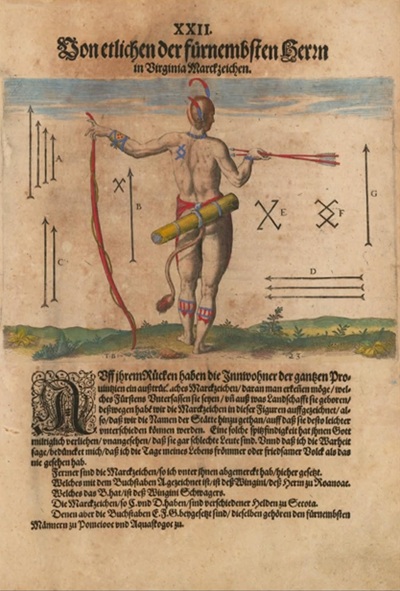 XXII.
Von etlichen der fürnembsten Herrn
in Virginia Marckzeichen.
A
B
C
D
E
F
G
Uff ihrem Rücken haben die Innwohner der gantzen Pro-
vintzien ein außtrückliches Marckzeichen / daran man erkeñen möge / wel-
ches Fürstens Untersassen sie seyen / vñ auß was Landschafft sie geboren /
deßwegen habẽ wir die Marckzeichen in dieser Figuren auffgezeichnet / al-
so / daß wir die Namen der Stätte hinzu gethan / auff daß sie desto leichter
unterschieden können werden. Eine solche spitzfindigkeit hat ihnen Gott
miltiglich verliehen / unangesehen / daß sie gar schlechte Leute sind. Unnd daß ich die Warheit
sage / bedüncket mich / daß ich die Tage meines Lebens frömmer oder friedsamer Volck als das
nie gesehen hab.
Ferner sind die Marckzeichen / so ich unter ihnen abgemerckt hab / hieher gesetzt.
Welches mit dem Buchstaben A. gezeichnet ist / ist deß Wingini / deß Herrn zu Roanoac.
Welches das B. hat / ist deß Wingini Schwagers.
Die Marckzeichen / so C. vnd D. haben / sind verschiedener Helden zu Secota.
Denen aber die Buchstaben E. F. G. beygesetzt sind / dieselben gehören den fürnembsten
Männern zu Pomeiooc vnd Aquascogoc zu.